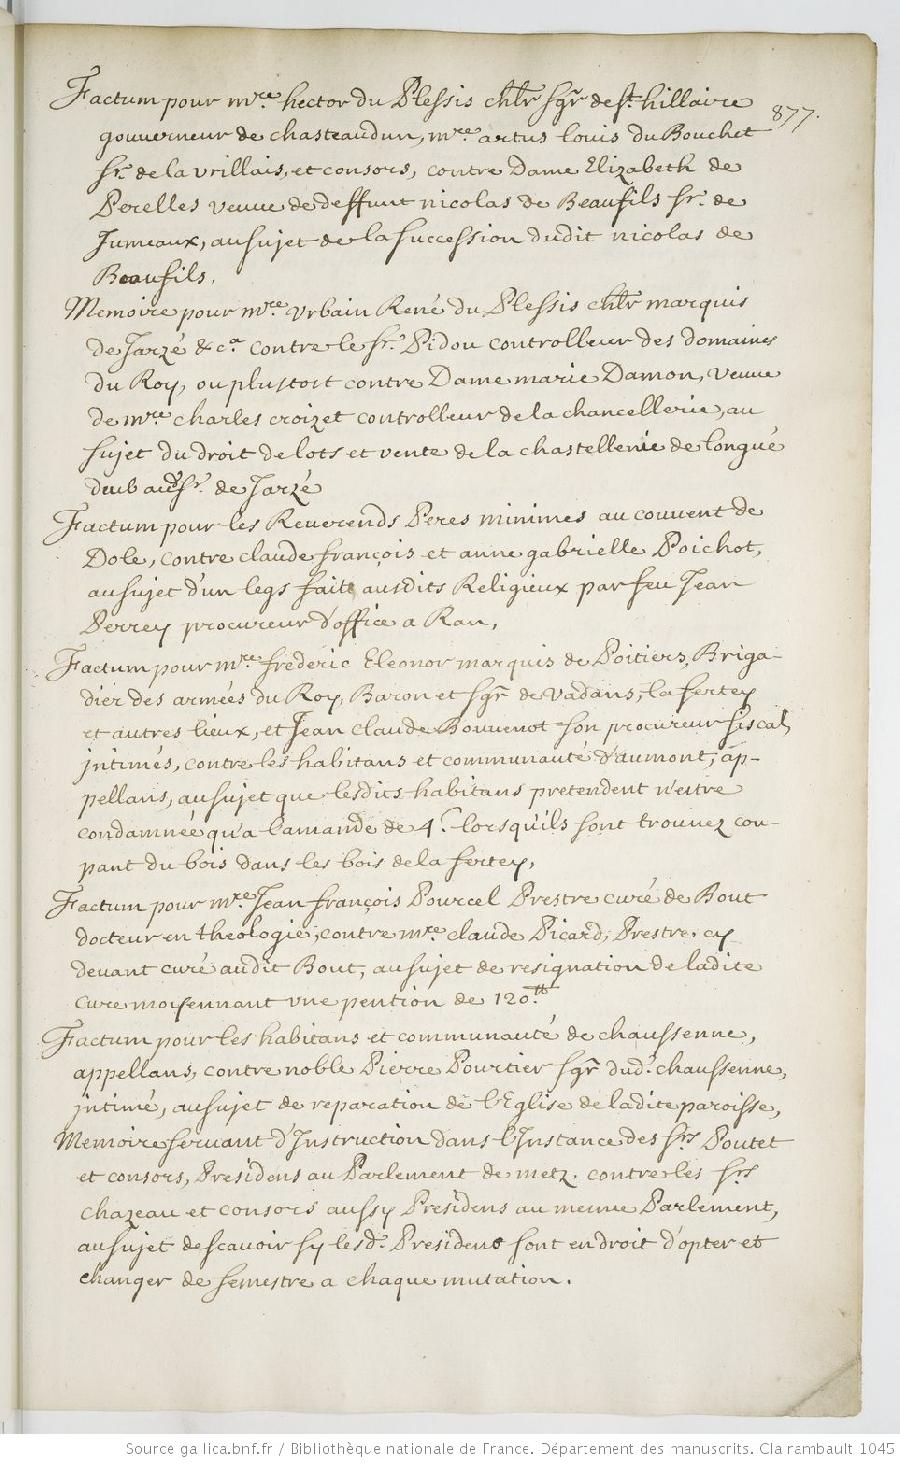 Factum pour m.re hector du Plessis chlr sgr de st hillaire
877.
gouuerneur de chasteaudun, m.re artus louis du Bouchet
sr. de la vrillais, et consors, contre Dame Elizabeth de
Perelles veuue de deffunt nicolas de Beaufils sr. de
Jumeaux, au sujet de la succession dudit nicolas de
Beaufils.
Memoire pour m.re vrbain René du Plessis chlr marquis
de Jarzé & ca contre le sr. Pidou controlleur des domaines
du Roy, ou plustost contre Dame marie Damon, veuue
de m.re charles croizet controlleur de la chancellerie, au
sujet du droit de lots et vente de la chastellenie de longué
de Jarzé
Factum pour les Reuerends Peres minimes au couuent de
Dole, contre claude françois et anne gabrielle Poichot,
au sujet d'un legs fait ausdits Religieux par feu Jean
Perrey procureur d'office a Ran,
Factum pour m.re frederic Eleonor marquis de Poitiers, Briga-
dier des armées du Roy, Baron et sgr de vadans, la fertey
et autres lieux, et Jean claude Bouuenot son procureur fiscal
intimés, contre les habitans et communauté d'aumont, ap-
pellans, au sujet que lesdits habitans pretendent n'etre
condamnée qu'a l'amande de 4.s lorsqu'ils sont trouuez cou-
pant du bois dans les bois de la fertey,
Factum pour m.re Jean françois Pourcel Prestre curé de Bout
docteur en theologie, contre m.re claude Picard, Prestre cy
deuant curé audit Bout, au sujet de resignation de ladite
cure moyennant vne pention de 120.tt
Factum pour les habitans et communauté de chaussenne,
appellans, contre noble Pierre Pourtier sgr dud. chaussenne,
intimé, au sujet de reparation de l'Eglise de ladite paroisse,
Memoire seruant d'Instruction dans l'Instance des srs Poutet
et consors, Presidens au Parlement de metz. contre les srs
chazeau et consors aussy Presidens au mesme Parlement,
au sujet de scauoir sy lesd. Presidens sont en droit d'opter et
changer de semestre a chaque mutation.
Source gallica.bnf.fr / Bibliothèque nationale de France. Département des manuscrits. Clairambault 1045